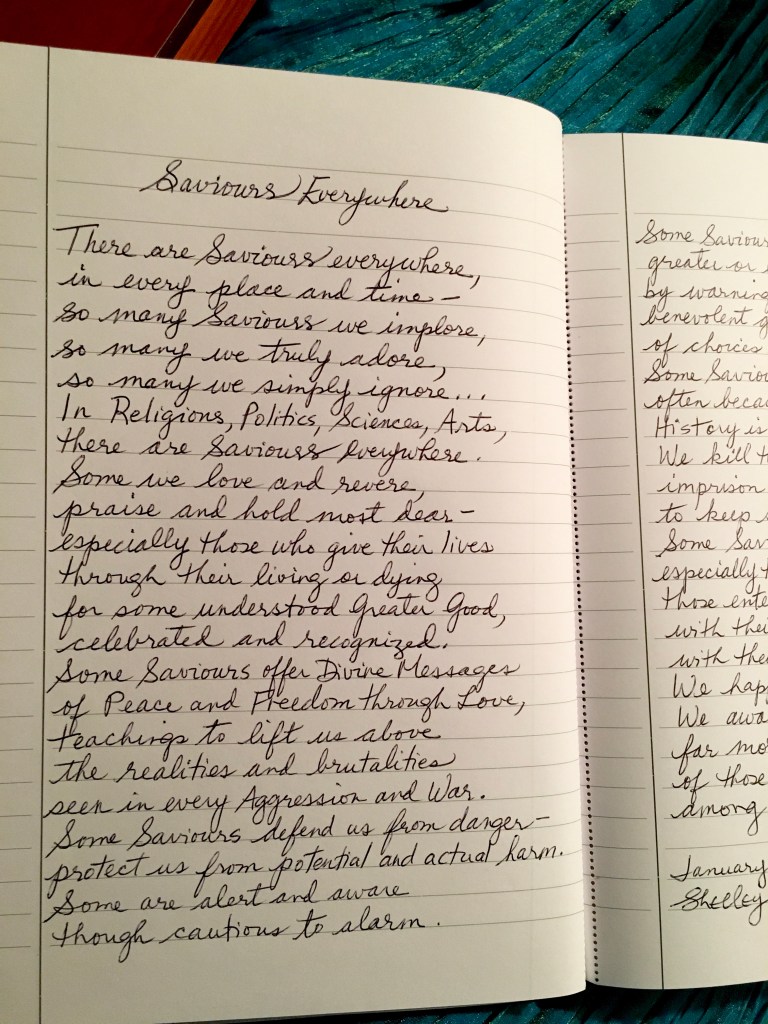 Saviours Everywhere
There are Saviours everywhere,
in every place and time –
so many Saviours we implore,
so many we truly adore,
so many we simply ignore...
In Religions, Politics, Sciences, Arts,
there are Saviours Everywhere.
Some we love and revere,
praise and hold most dear –
especially those who give their lives
through their living or dying
for some understood Greater Good,
celebrated and recognized.
Some Saviours offer Divine Messages
of Peace and Freedom through Love,
teachings to lift us above
the realities and brutalities
seen in every Aggression and War.
Some Saviours defend us from danger –
protect us from potential and actual harm.
Some are alert and aware
though cautious to alarm.
Some Saviour
greater or
by warning
benevolent
of choices
Some Saviou
often beca
History is
We kill
imprison
to keep
Some Sav
especially
those ente
with thei
with the
We hap
We awa
far mo
of those
among
January
Shelley